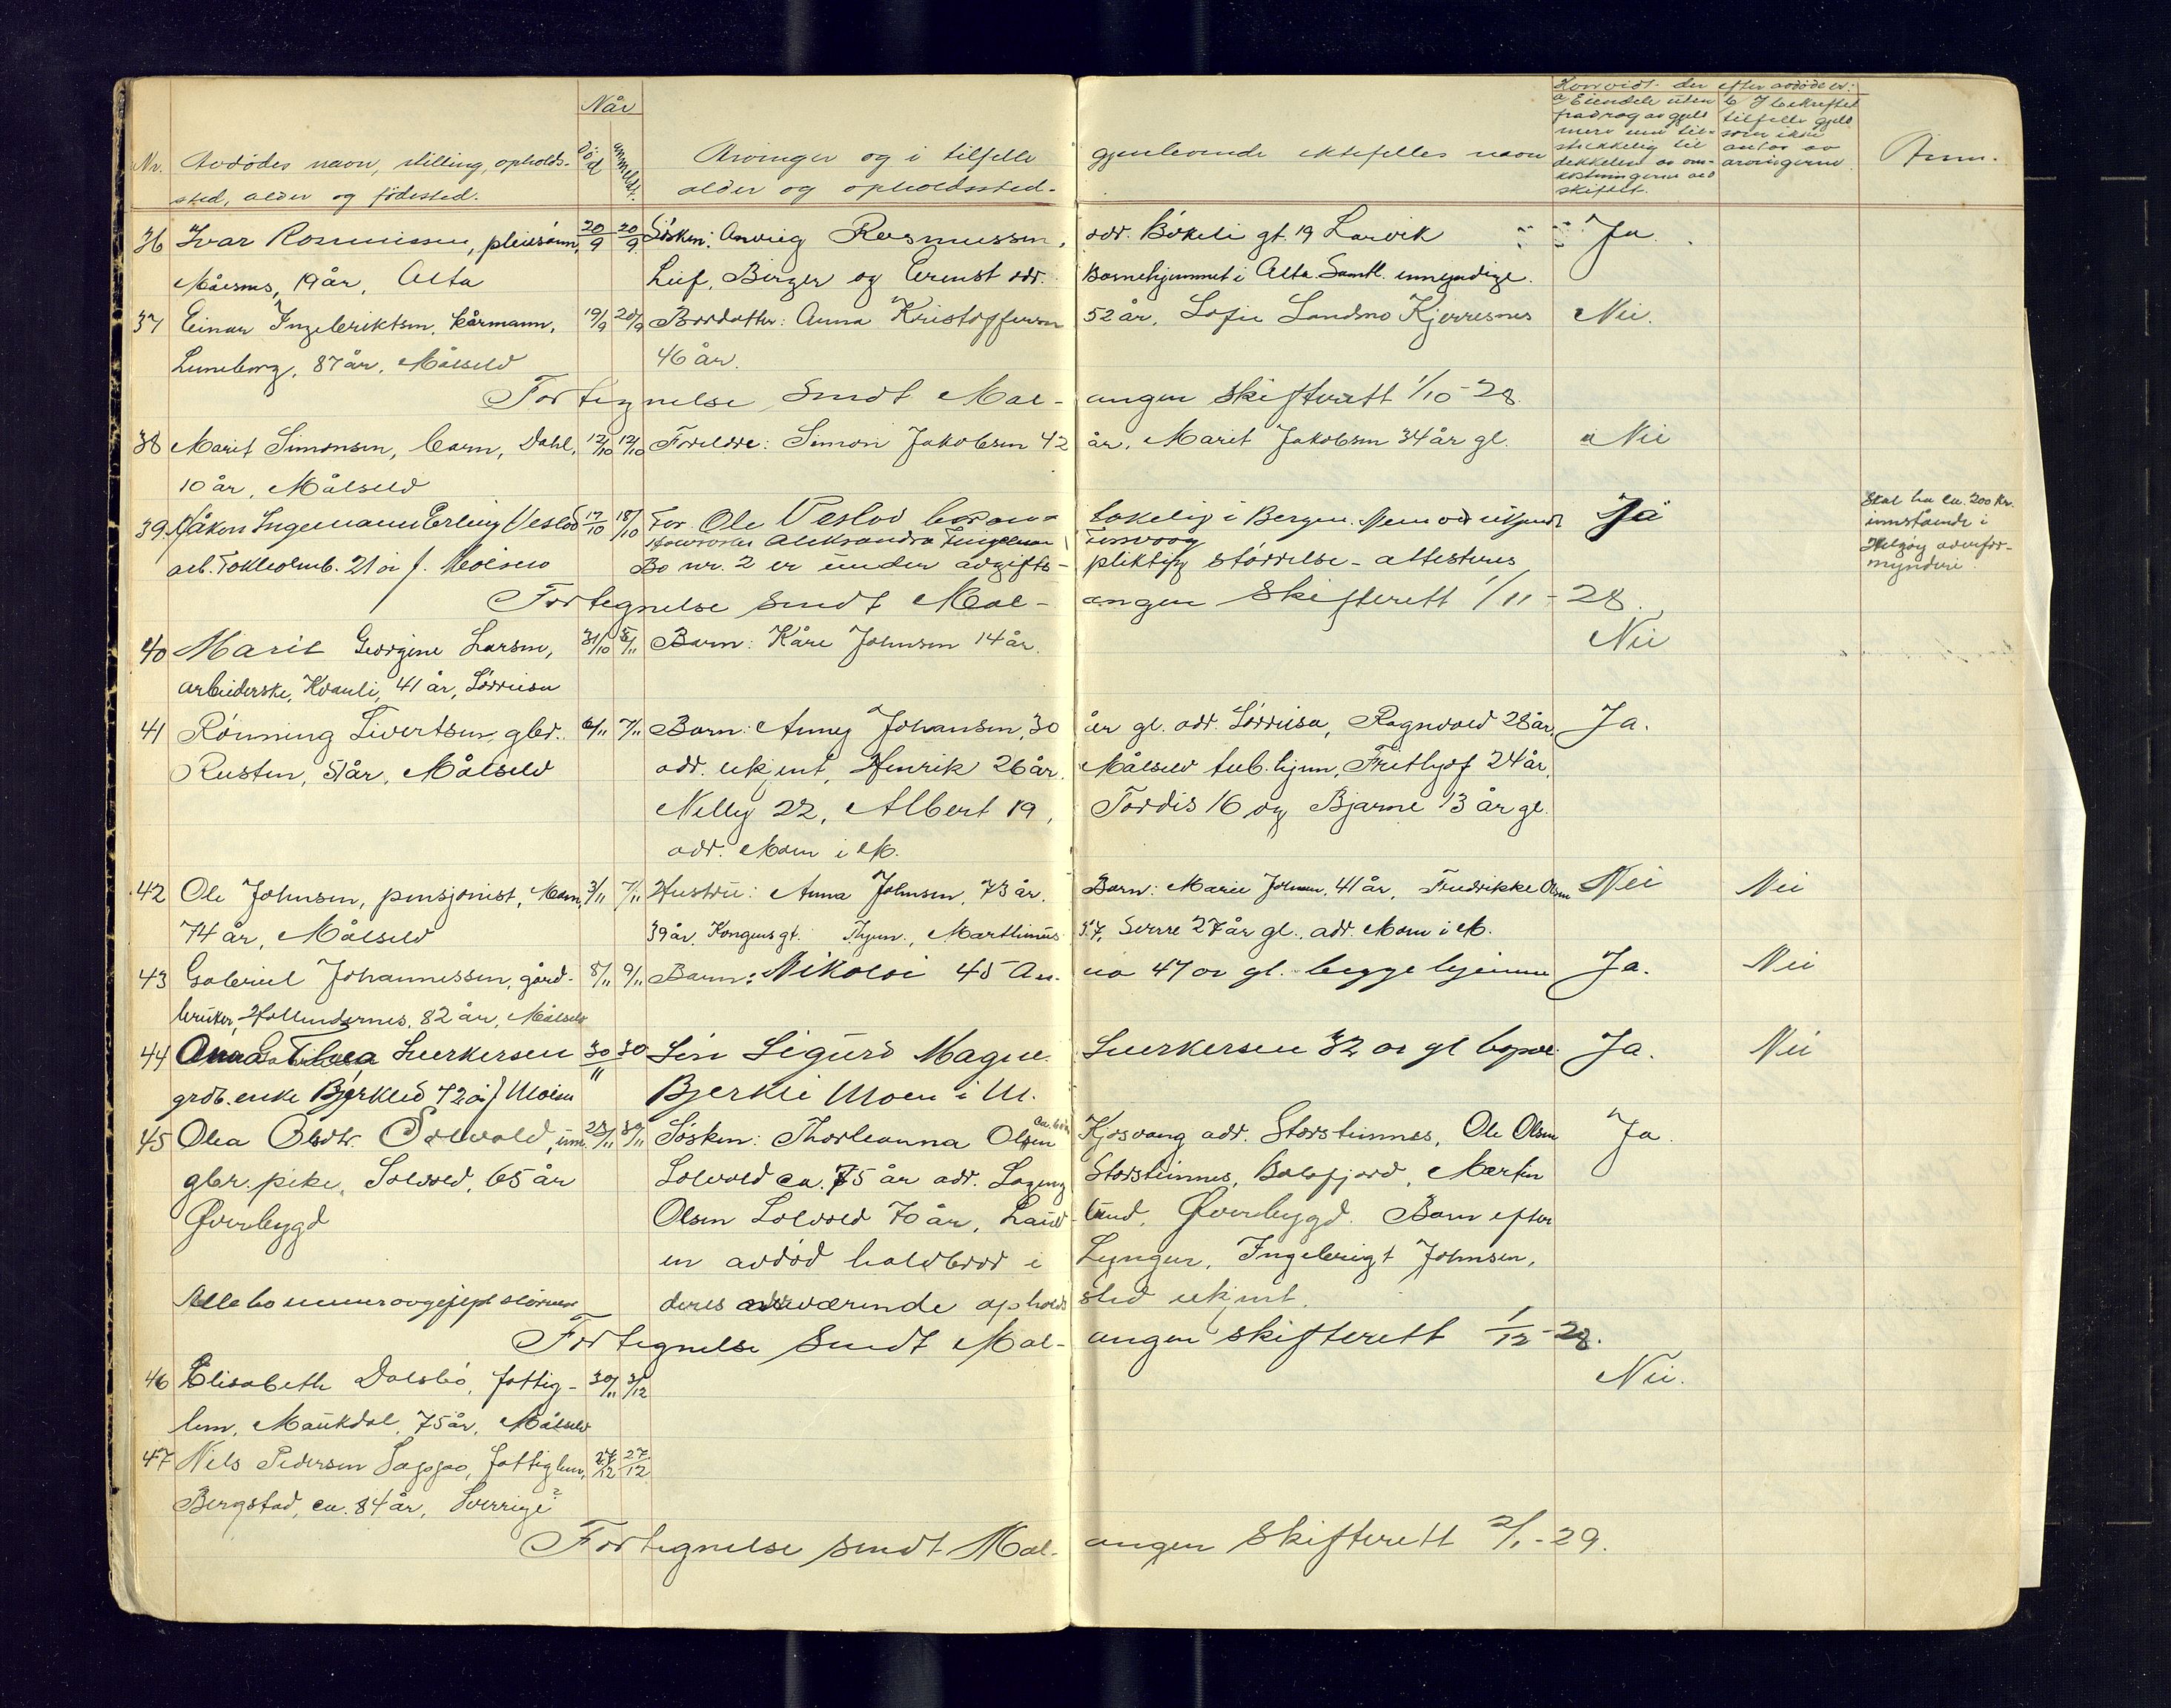 Når
Hvorvidt der efter avdöde er:
Nr. Avdödes navn, stilling, opholds-
sted, alder og födested.
Död anmeldt.
Arvinger og i tilfelle gjenlevende ektefelles navn
alder og opholdssted.
a Eiendele uten
fradrag av gjeld
mere enn til-
strekkelig til
dekkelse av om-
kostningerne ved
skiftet.
b I bekreftet
tilfelle gjeld
som ikke
antas av
arvingerne
Anm.
36 Ivar Rasmussen, pleiesönn, 20/9 20/9 Søsken: Rasmussen, adr. Bökeli gt. 19 Larvik Ja.
Målsnes, 19 år, Alta Leif, Birger og Ernst adr. Barnehjemmet i Alta. Samtl. umyndige.
37 Einar Ingebriktsen, kårmann, 19/9 20/9 Brordatter: Anna Kristoffersen 52 år, Sofie Sandmo Kjerresnes Nei.
Luneborg, 87 år, Målselv 46 år.
Fortegnelse sendt Malangen skifterett 1/10-28.
38 Marit Simonsen, barn, Dahl, 12/10 12/10 Foreldre: Simon Jakobsen 42 år, Marit Jakobsen 34 år gl. Nei
10 år, Målselv
39 Håkon Ingemann Erling Veslod 17/10 18/10 Far Ole Veslod bor an- takelig i Bergen. Ja
Aleksandra
arb. 21 år f. Bo nr. 2 er under avgifts- pliktig størrelse - attesteres
Skal ha ca. 200 kr.
innstående i
Helgöy overfor-
mynderi.
Fortegnelse sendt Malangen Skifterett 1/11-28.
40 Marie Georgine Larsen, 31/10 5/11 Barn: Kåre Johnsen 14 år. Nei
arbeiderske, Kvanli, 41 år, Sörreisa
41 Rönning Sivertsen, gbr. 6/11 7/11 Barn: Anny Johansen, 30 år gl. adr. Sörreisa, Ragnvald 28 år, Ja.
Rusten, 51 år, Målselv adr. ukjent, Henrik 26 år. Målselv tub. hjem, Frithjof 24 år,
Nelly 22, Albert 19, Tordis 16 og Bjarne 13 år gl.
adr. Moen i M.
42 Ole Johnsen, pensjonist, Moen, 3/11 7/11 Hustru: Anna Johnsen, 73 år. Barn: Marie Johnsen, 41 år, Fredrikke Olsen Nei Nei
74 år, Målselv 39 år, Kongensgt. Marthinus 37, Sverre 27 år gl., adr. Moen i M.
43 Gabriel Johannessen, gård- 8/11 9/11 Barn: Nikolai 45 An- na 47 år gl. begge hjemme Ja. Nei
bruker, Hollendernes, 82 år, Målselv
44 Anna Sverkersen 30/11 30 Sön Sigurd Magne Sverkersen 32 år gl bopæl Ja. Nei
grdb. enke Bjerklid 72 år f Bjerkli Moen i M.
45 Olea Olsdtr. Solvold, 23/11 30/11 Søsken: Thorleanna Olsen Kjosvang adr. Storsteinnes, Ole Olsen Ja.
gbr. pike, Solvold, 65 år Solvold ca. 75 år adr. Storsteinnes, Balsfjord, Martin
Øverbygd Olsen Solvold 70 år, lund, Øverbygd. Barn efter
en avdöd halvbror i Lyngen, Ingebrigt Johnsen,
Alle bo under avgifspl størrelse deres nuværende opholds sted ukjent.
Fortegnelse sendt Malangen skifterett 1/12-28.
46 Elisabeth Dalsbö, fattig- 30/11 3/12 Nei.
lem, Maukdal, 75 år, Målselv
47 Nils Pedersen fattiglem, 27/12 27/12
Bergstad, ca. 84 år, Sverrige?
Fortegnelse sendt Malangen Skifterett 2/1-29.